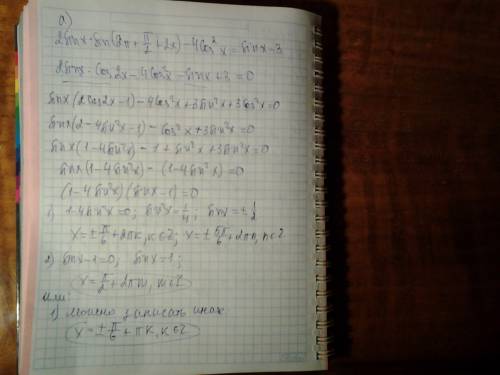 а)
2sinx·sin(2π + π/2 + 2x) - 4cos²x = sinx - 3
2sinx · cos2x - 4cos²x - sinx + 3 = 0
sinx(2cos2x-1) - 4cos²x + 3sin²x + 3cos²x = 0
sinx(2-4sin²x-1) - cos²x + 3sin²x = 0
sinx(1-4sin²x) - 1 + sin²x + 3sin²x = 0
sinx(1-4sin²x) - (1-4sin²x) = 0
(1-4sin²x)(sinx-1) = 0
1) 1-4sin²x = 0; sin²x = 1/4; sinx = ± 1/2
x = ± π/6 + 2πk, k∈Z; x = ± 5π/6 + 2πn, n∈Z
2) sinx-1=0; sinx=1;
x = π/2 + 2πm, m∈Z
или:
1) можно записать иначе
x = ± π/6 + πk, k∈Z